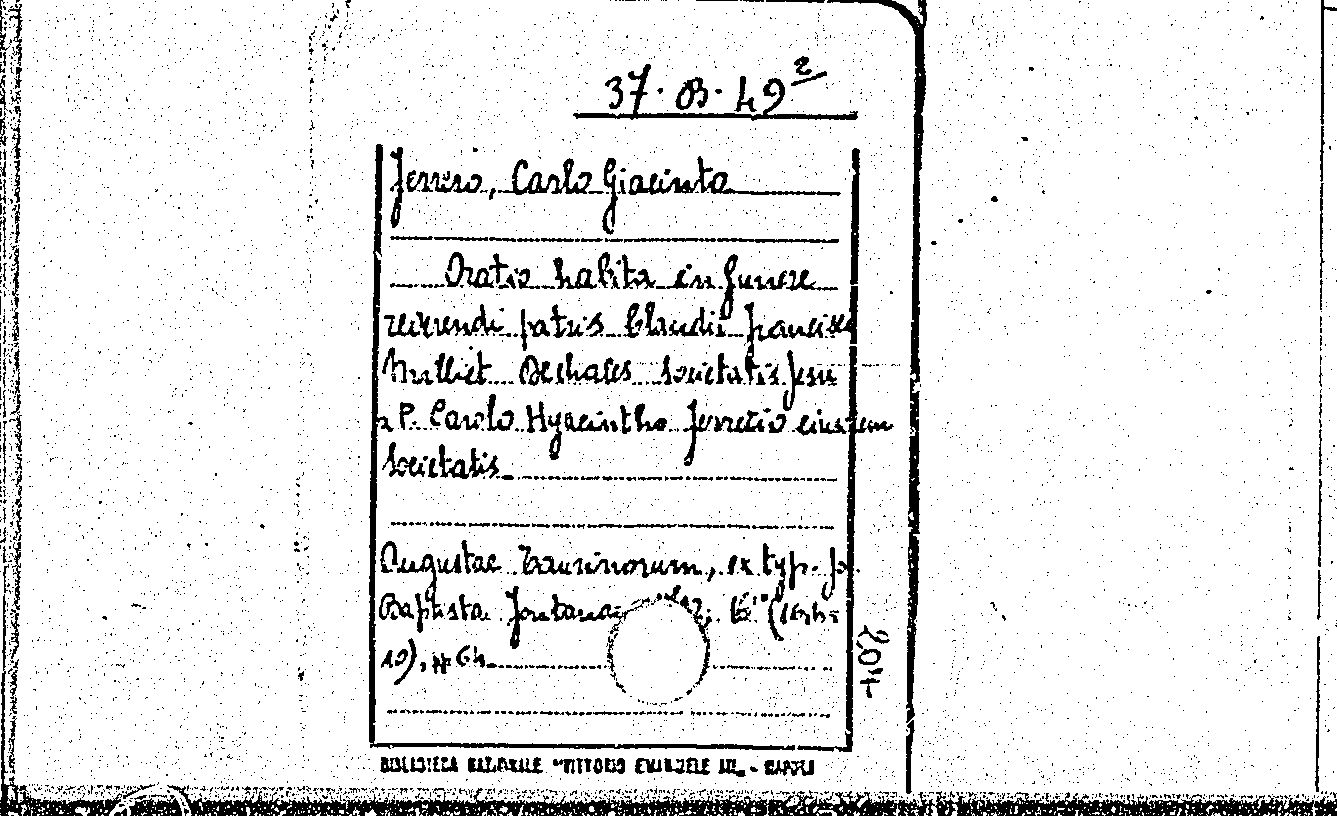 37. B. 49²
Ferrero, Carlo Giacinto
Oratio habita in funere
reverendi patris Claudii Francisci
Milliet Dechales Societatis Jesu
a P. Carolo Hyacintho Ferrerio eiusdem
Societatis
Augustae Taurinorum, ex typ. Jo.
Baptista Fontana
19), p. 64.
204
BIBLIOTECA NAZIONALE "VITTORIO EMANUELE III" - NAPOLI